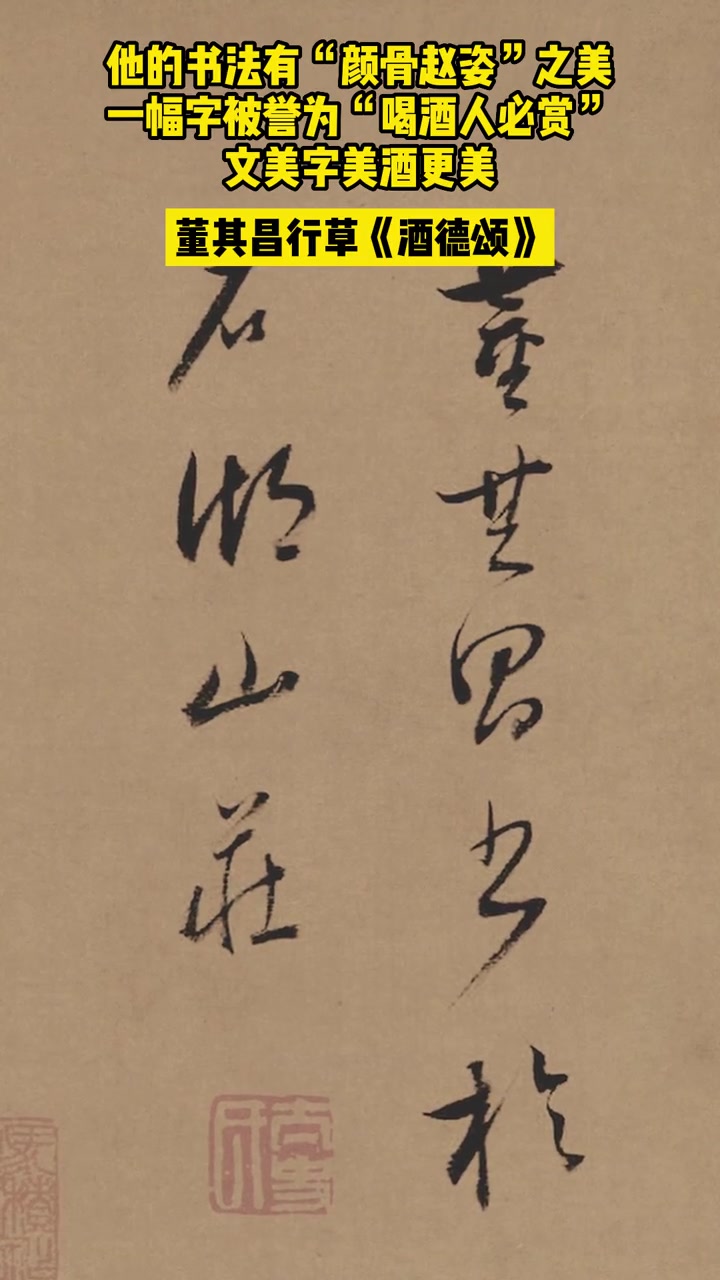 他的书法有“颜骨赵姿”之美
一幅字被誉为“喝酒人必赏”
文美字美酒更美
董其昌行草《酒德颂》
董其昌书於
石湖山莊